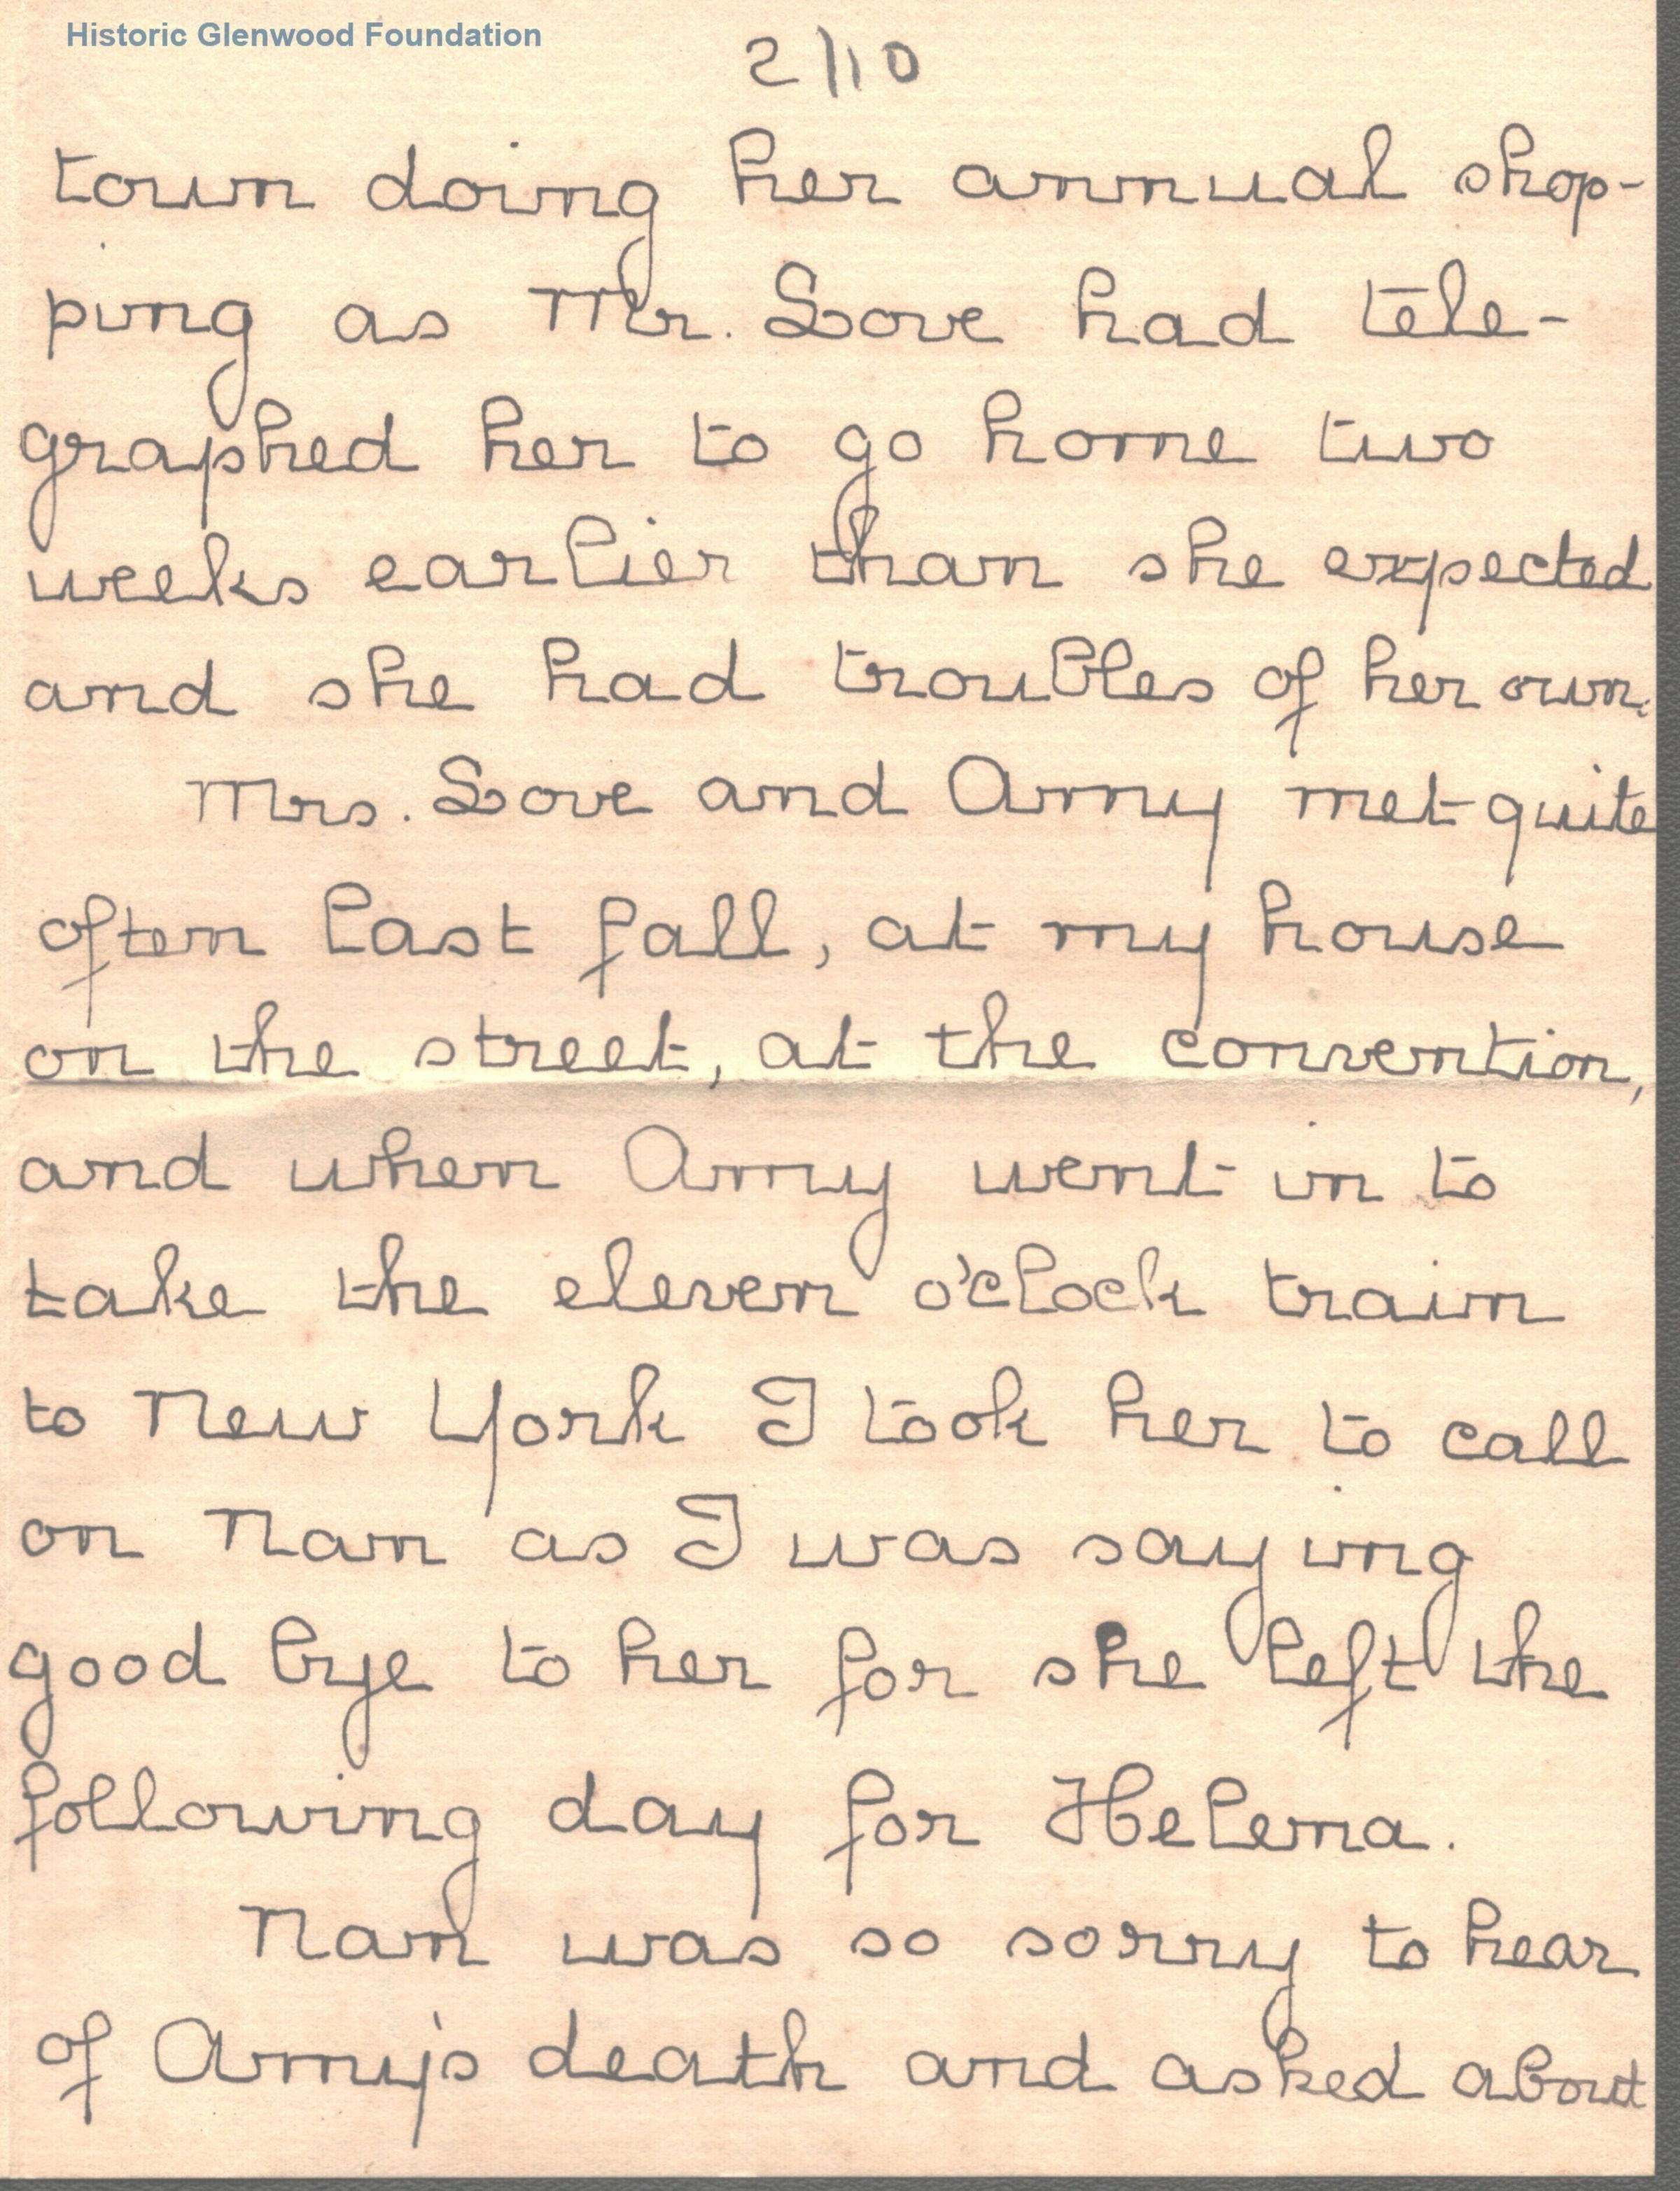 Historic Glenwood Foundation
2/10
town doing her annual shop-
ping as Mr. Love had tele-
graphed her to go home two
weeks earlier than she expected
and she had troubles of her own.
Mrs. Love and Amy met quite
often last fall, at my house
on the street, at the convention,
and when Amy went in to
take the eleven o'clock train
to New York I took her to call
on Nan as I was saying
good bye to her for she left the
following day for Helena.
Nan was so sorry to hear
of Amy's death and asked about